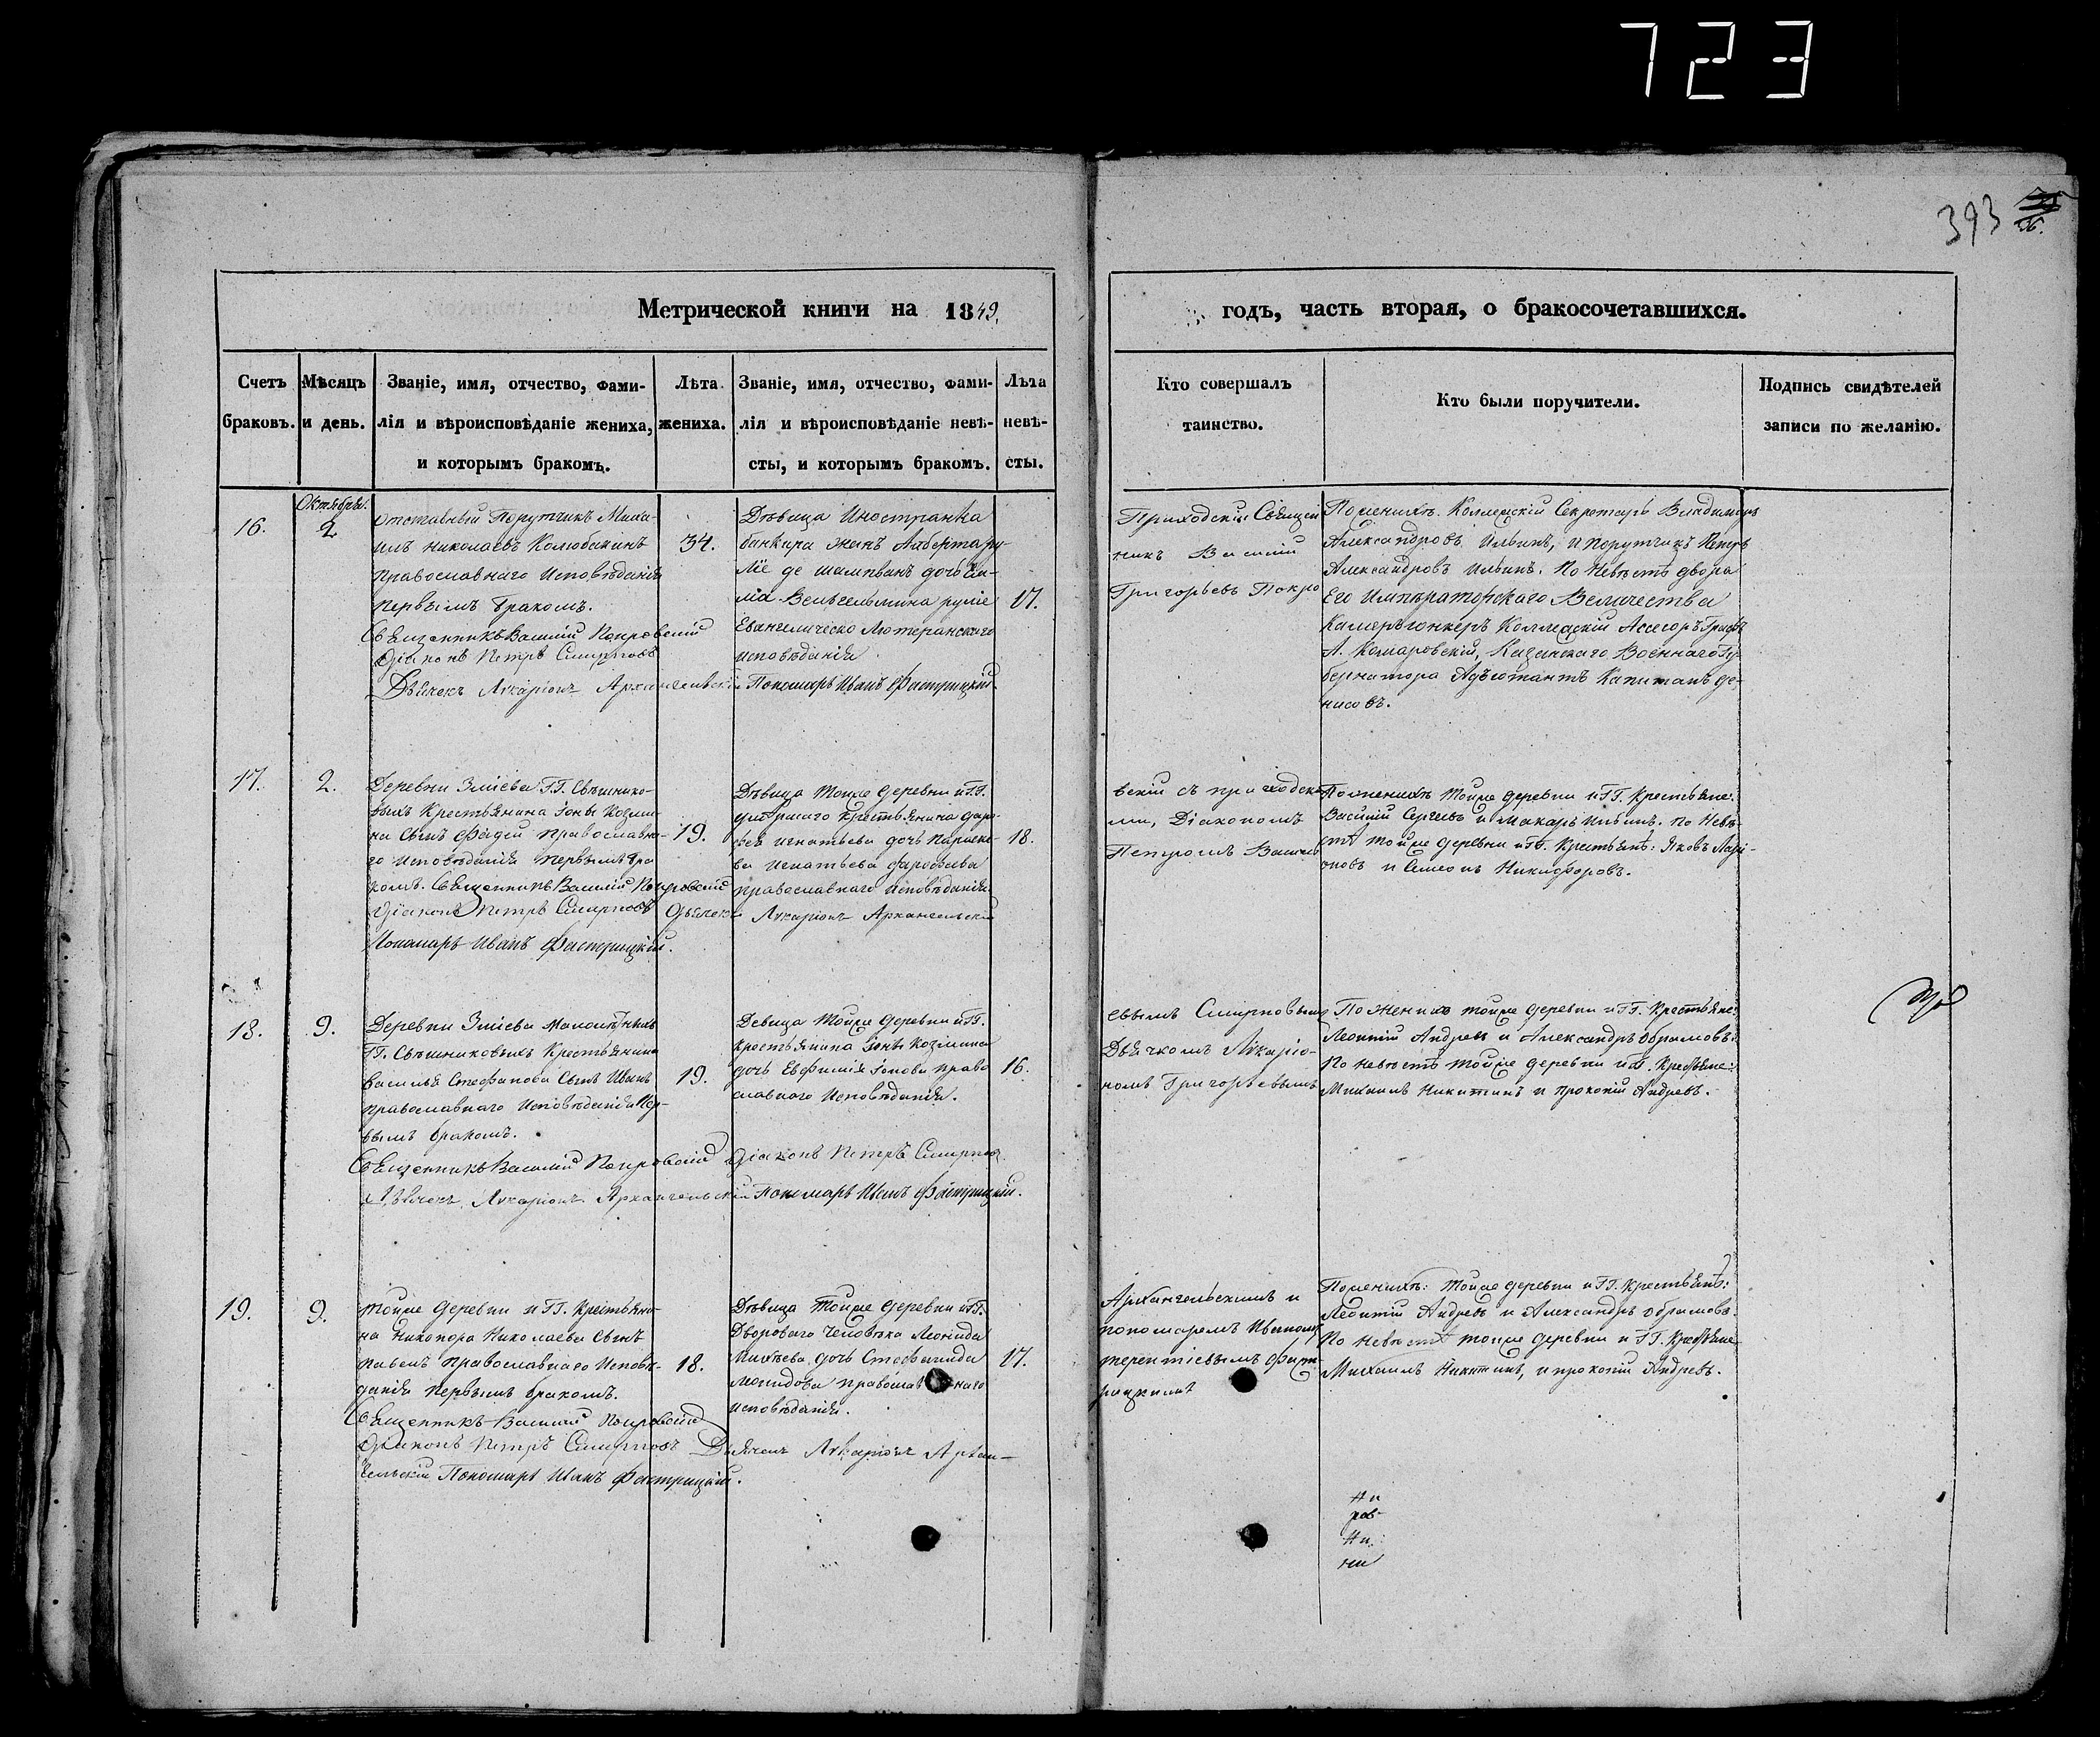 723
393
Метрической книги на 1849.
годъ, часть вторая, о бракосочетавшихся.
Счетъ браковъ.
Мѣсяцъ и день.
Званіе, имя, отчество, фами-
лія и вѣроисповѣданіе жениха,
и которымъ бракомъ.
Лѣта
жениха.
Званіе, имя, отчество, фами-
лія и вѣроисповѣданіе невѣ-
сты, и которымъ бракомъ.
Лѣта
невѣ-
сты.
Кто совершалъ
таинство.
Кто были поручители.
Подпись свидѣтелей
записи по желанію.
16.
Октября.
2
Отставный Порутчикъ Миха-
илъ Николаевъ Колюбакинъ
православнаго Исповѣданія
первымъ бракомъ.
Священникъ Василій Покровскій
Діаконъ Петръ Смирновъ
Дьячекъ Лукаріонъ Архангельскій
Пономарь Иванъ Фастрицкій.
34.
Дѣвица Иностранка
банкира Жанъ Алберта ру-
ліе де дочь
Вельгельмина руліе
Евангелическо Лютеранскаго
исповѣданія
17.
Приходскій Священ
никъ Василій
Григорьевъ Покро
Поженихѣ. Коллежскій Секретарь Владимиръ
Александровъ Ильинъ, и порутчикъ Петръ
Александровъ Ильинъ. По Невѣстѣ двора
Его Императорскаго Величества
Камеръ юнкеръ Коллежскій Асесоръ Графъ
А. Комаровскій, Казанскаго Военнаго Гу-
бернатора Адъютантъ Капитанъ Де-
нисовъ.
17.
2.
Деревни Зміева Г.Г. Свѣшнико-
выхъ Крестьянина Іоны Козми-
на сынъ Фадей православна-
го исповѣданія первымъ бра
комъ. Священникъ Василій Покровскій
Діаконъ Петръ Смирновъ Дьячекъ Лукаріонъ Архангельскій
Пономарь Иванъ Фастрицкій.
19.
Дѣвица тойже деревни и Г.Г.
умершаго крестьянина
Игнатьева дочь Параске-
ва Игнатьева
православнаго исповѣданія
18.
вскій съ приходски
ми, Діакономъ
Петромъ Василь
Поженихѣ тойже деревни и Г.Г. крестьяне:
Василій Сергѣевъ и Макаръ Ильинъ. по Невѣ-
стѣ тойже деревни и Г. крестьянѣ: Яковъ Лари-
оновъ и Семенъ Никифоровъ.
18.
9.
Деревни Зміева Малолѣтныхъ
Г.Г. Свѣшниковыхъ Крестьянина
Василья Стефанова Сынъ Иванъ
православнаго Исповѣданія Пер-
вымъ бракомъ.
Священникъ Василій Покровскій Діаконъ Петръ Смирновъ
Дьячекъ Лукаріонъ Архангельскій Пономарь Иванъ Фастрицкій.
19.
Девица тойже деревни и Г.Г.
крестьянина Іоны Козмина
дочь Евфимія Іонова право
славнаго Исповѣданія.
16.
евымъ Смирновымъ
Дьячкомъ Лукаріо-
номъ Григорьевымъ
По Женихѣ тойже деревни и Г.Г. Крестьяне:
Леонтій Андреевъ и Александръ Абрамовъ.
По невѣстѣ тойже деревни и Г. Крестьяне:
Михаилъ Никитинъ и прокопій Андреевъ.
19.
9.
тойже деревни и Г.Г. крестьяни-
на Никонора Николаева Сынъ
Павелъ православнаго Исповѣ-
данія первымъ бракомъ.
Священникъ Василій Покровскій
Діаконъ Петръ Смирновъ Дьячекъ Лукаріонъ Архан-
гельскій Пономарь Иванъ Фастрицкій.
18.
Дѣвица тойже деревни и Г.Г.
Двороваго Человѣка Леонида
Михѣева дочь Стефанида
Леонидова православнаго
исповѣданія.
17.
Архангельскимъ и
пономаремъ Иваномъ
терентіевымъ Фаст-
рицкимъ
Поженихѣ: тойже деревни и Г.Г. крестьянѣ:
Леонтій Андреевъ и Александръ Абрамовъ.
По невѣстѣ тойже деревни и Г.Г. Крестьяне
Михаилъ Никитинъ, и прокопій Андреевъ.